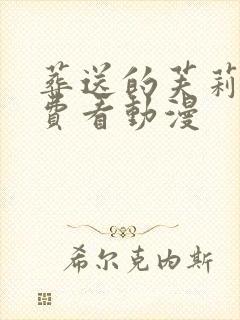 葬送的芙莉
費看動漫
希尔克内斯